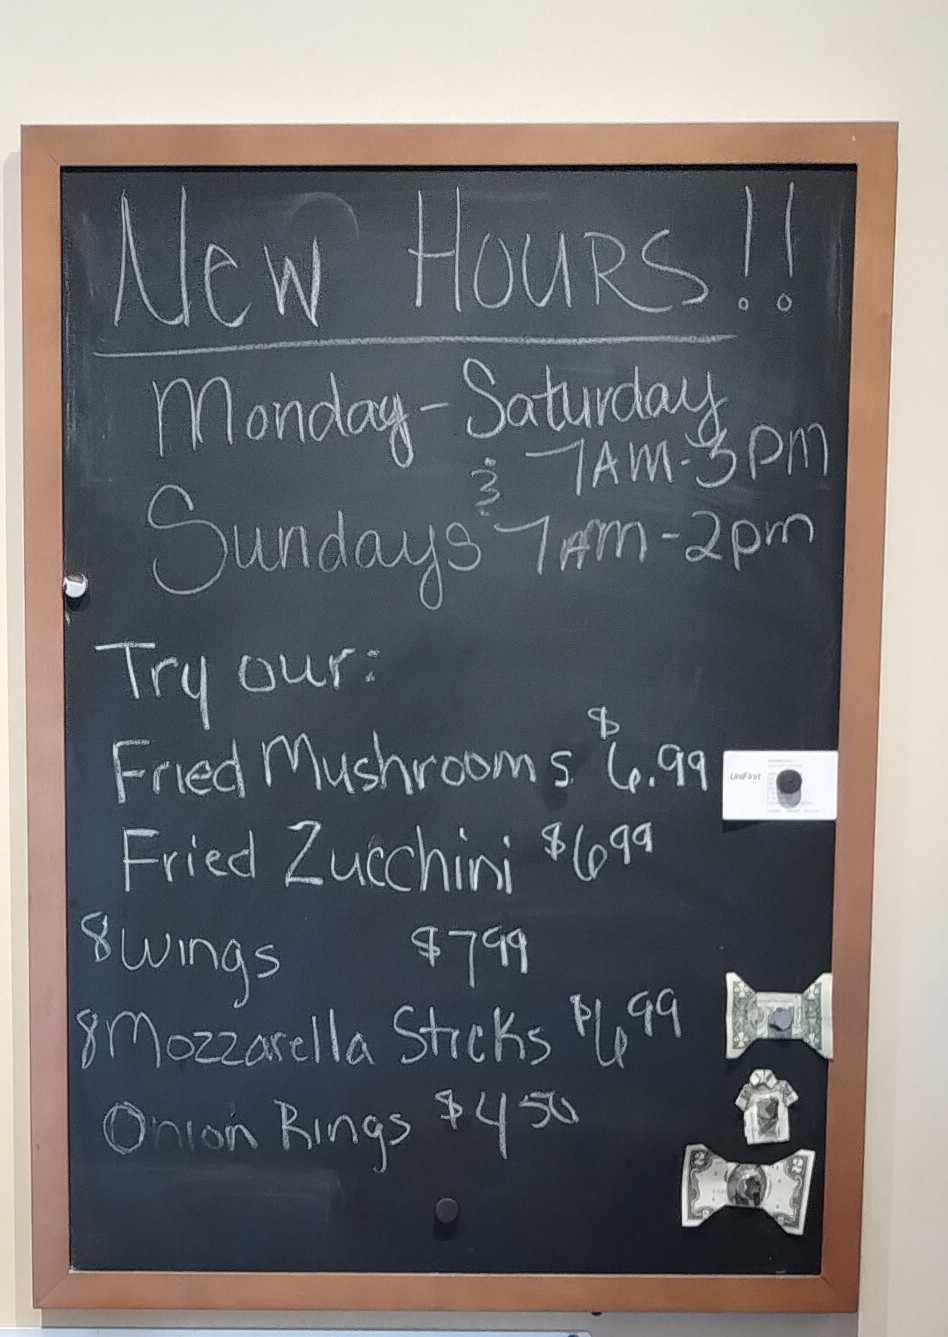 NEW HOURS!!
Monday - Saturday
7AM-3PM
&
Sundays 7AM-2pm
Try our:
Fried Mushrooms $6.99
Fried Zucchini $6 99
8 Wings $7 99
8 Mozzarella Sticks $6 99
Onion Rings $4 50
UniFirst
2 2